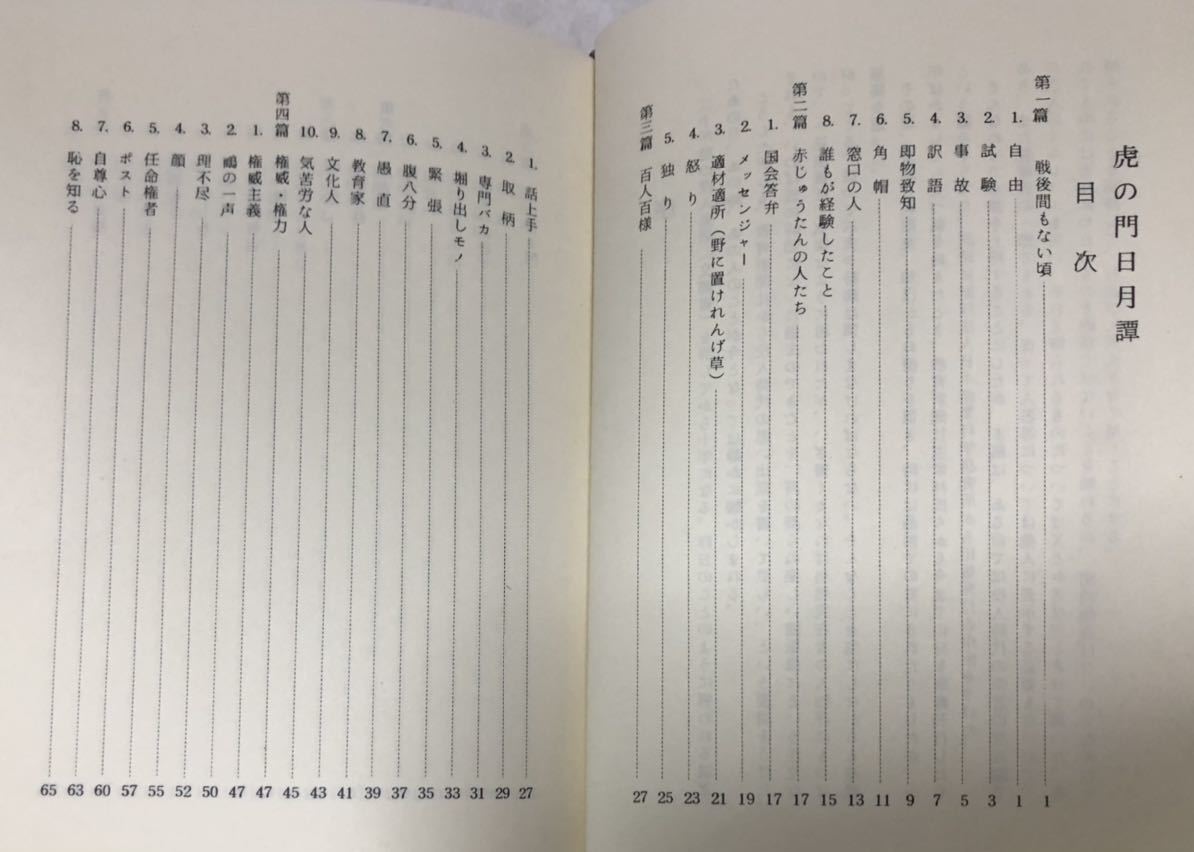 虎の門日月譚
目次
第一篇 戦後間もない頃 1
1. 自由 1
2. 試験 3
3. 事故 5
4. 訳語 7
5. 即物致知 9
6. 角帽 11
7. 窓口の人 13
8. 誰もが経験したこと 15
第二篇 赤じゅうたんの人たち 17
1. 国会答弁 17
2. メッセンジャー 19
3. 適材適所（野に置けれんげ草） 21
4. 怒り 23
5. 独り 25
第三篇 百人百様 27
1. 話上手 27
2. 取柄 29
3. 専門バカ 31
4. 堀り出しモノ 33
5. 緊張 35
6. 腹八分 37
7. 愚直 39
8. 教育家 41
9. 文化人 43
10. 気苦労な人 45
第四篇 権威・権力 47
1. 権威主義 47
2. 鶴の一声 50
3. 理不尽 52
4. 顔 55
5. 任命権者 57
6. ポスト 60
7. 自尊心 63
8. 恥を知る 65